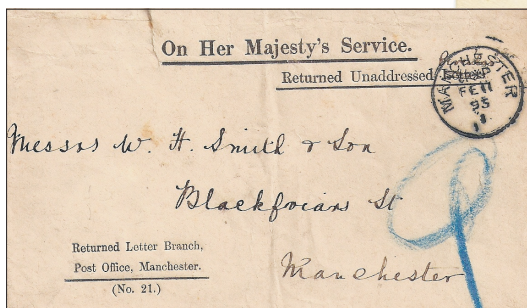 On Her Majesty's Service.
Returned Unaddressed
MANCHESTER
FE 11
95
Messrs W. H. Smith & Son
Blackfriars St
Manchester
Returned Letter Branch,
Post Office, Manchester.
(No. 21.)